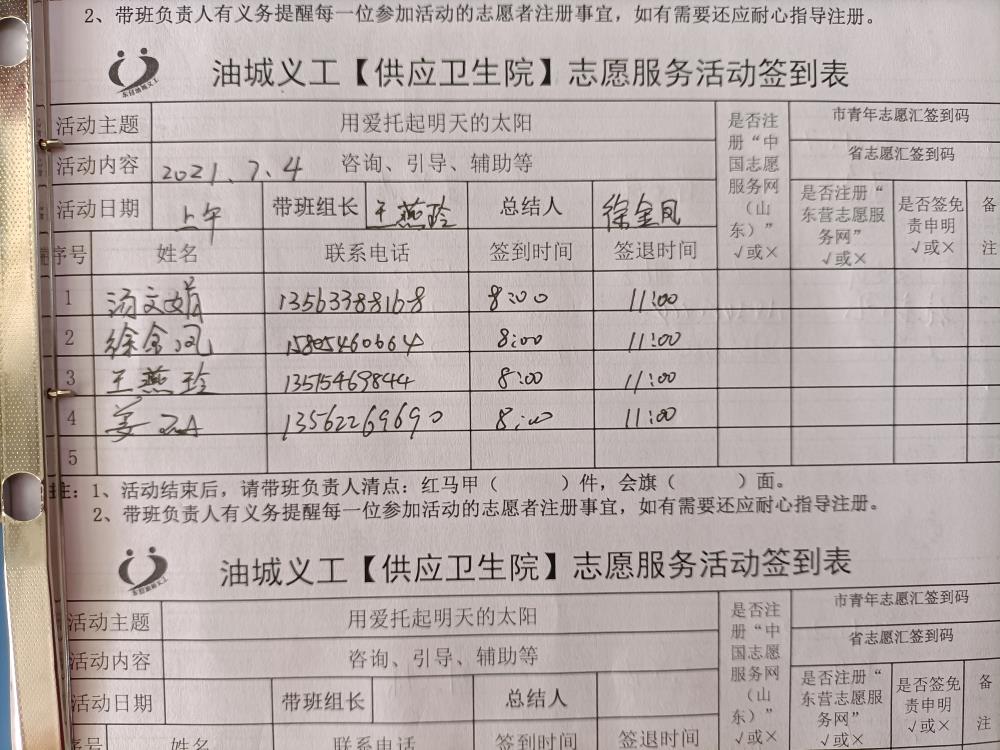 2、带班负责人有义务提醒每一位参加活动的志愿者注册事宜，如有需要还应耐心指导注册。
油城义工【供应卫生院】志愿服务活动签到表
活动主题 用爱托起明天的太阳 是否注册“中国志愿服务网（山东）”√或× 市青年志愿汇签到码
活动内容 咨询、引导、辅助等 省志愿汇签到码
活动日期 2021.7.4 上午 带班组长 王燕玲 总结人 徐金凤 是否注册“东营志愿服务网”√或× 是否签免责申明√或× 备注
序号 姓名 联系电话 签到时间 签退时间
1 汤文娟 13563388168 8:00 11:00
2 徐金凤 15805460664 8:00 11:00
3 王燕玲 13515469844 8:00 11:00
4 姜 13562269690 8:00 11:00
5
注：1、活动结束后，请带班负责人清点：红马甲（ ）件，会旗（ ）面。
2、带班负责人有义务提醒每一位参加活动的志愿者注册事宜，如有需要还应耐心指导注册。
油城义工【供应卫生院】志愿服务活动签到表
活动主题 用爱托起明天的太阳 是否注册“中国志愿服务网（山东）”√或× 市青年志愿汇签到码
活动内容 咨询、引导、辅助等 省志愿汇签到码
活动日期 带班组长 总结人 是否注册“东营志愿服务网”√或× 是否签免责申明√或× 备注
序号 姓名 联系电话 签到时间 签退时间